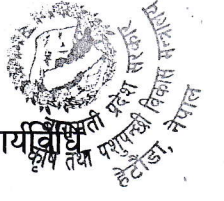 बागमती प्रदेश सरकार
कृषि तथा पशुपन्छी विकास मन्त्रालय
हेटौंडा, नेपाल
र्यविधि,